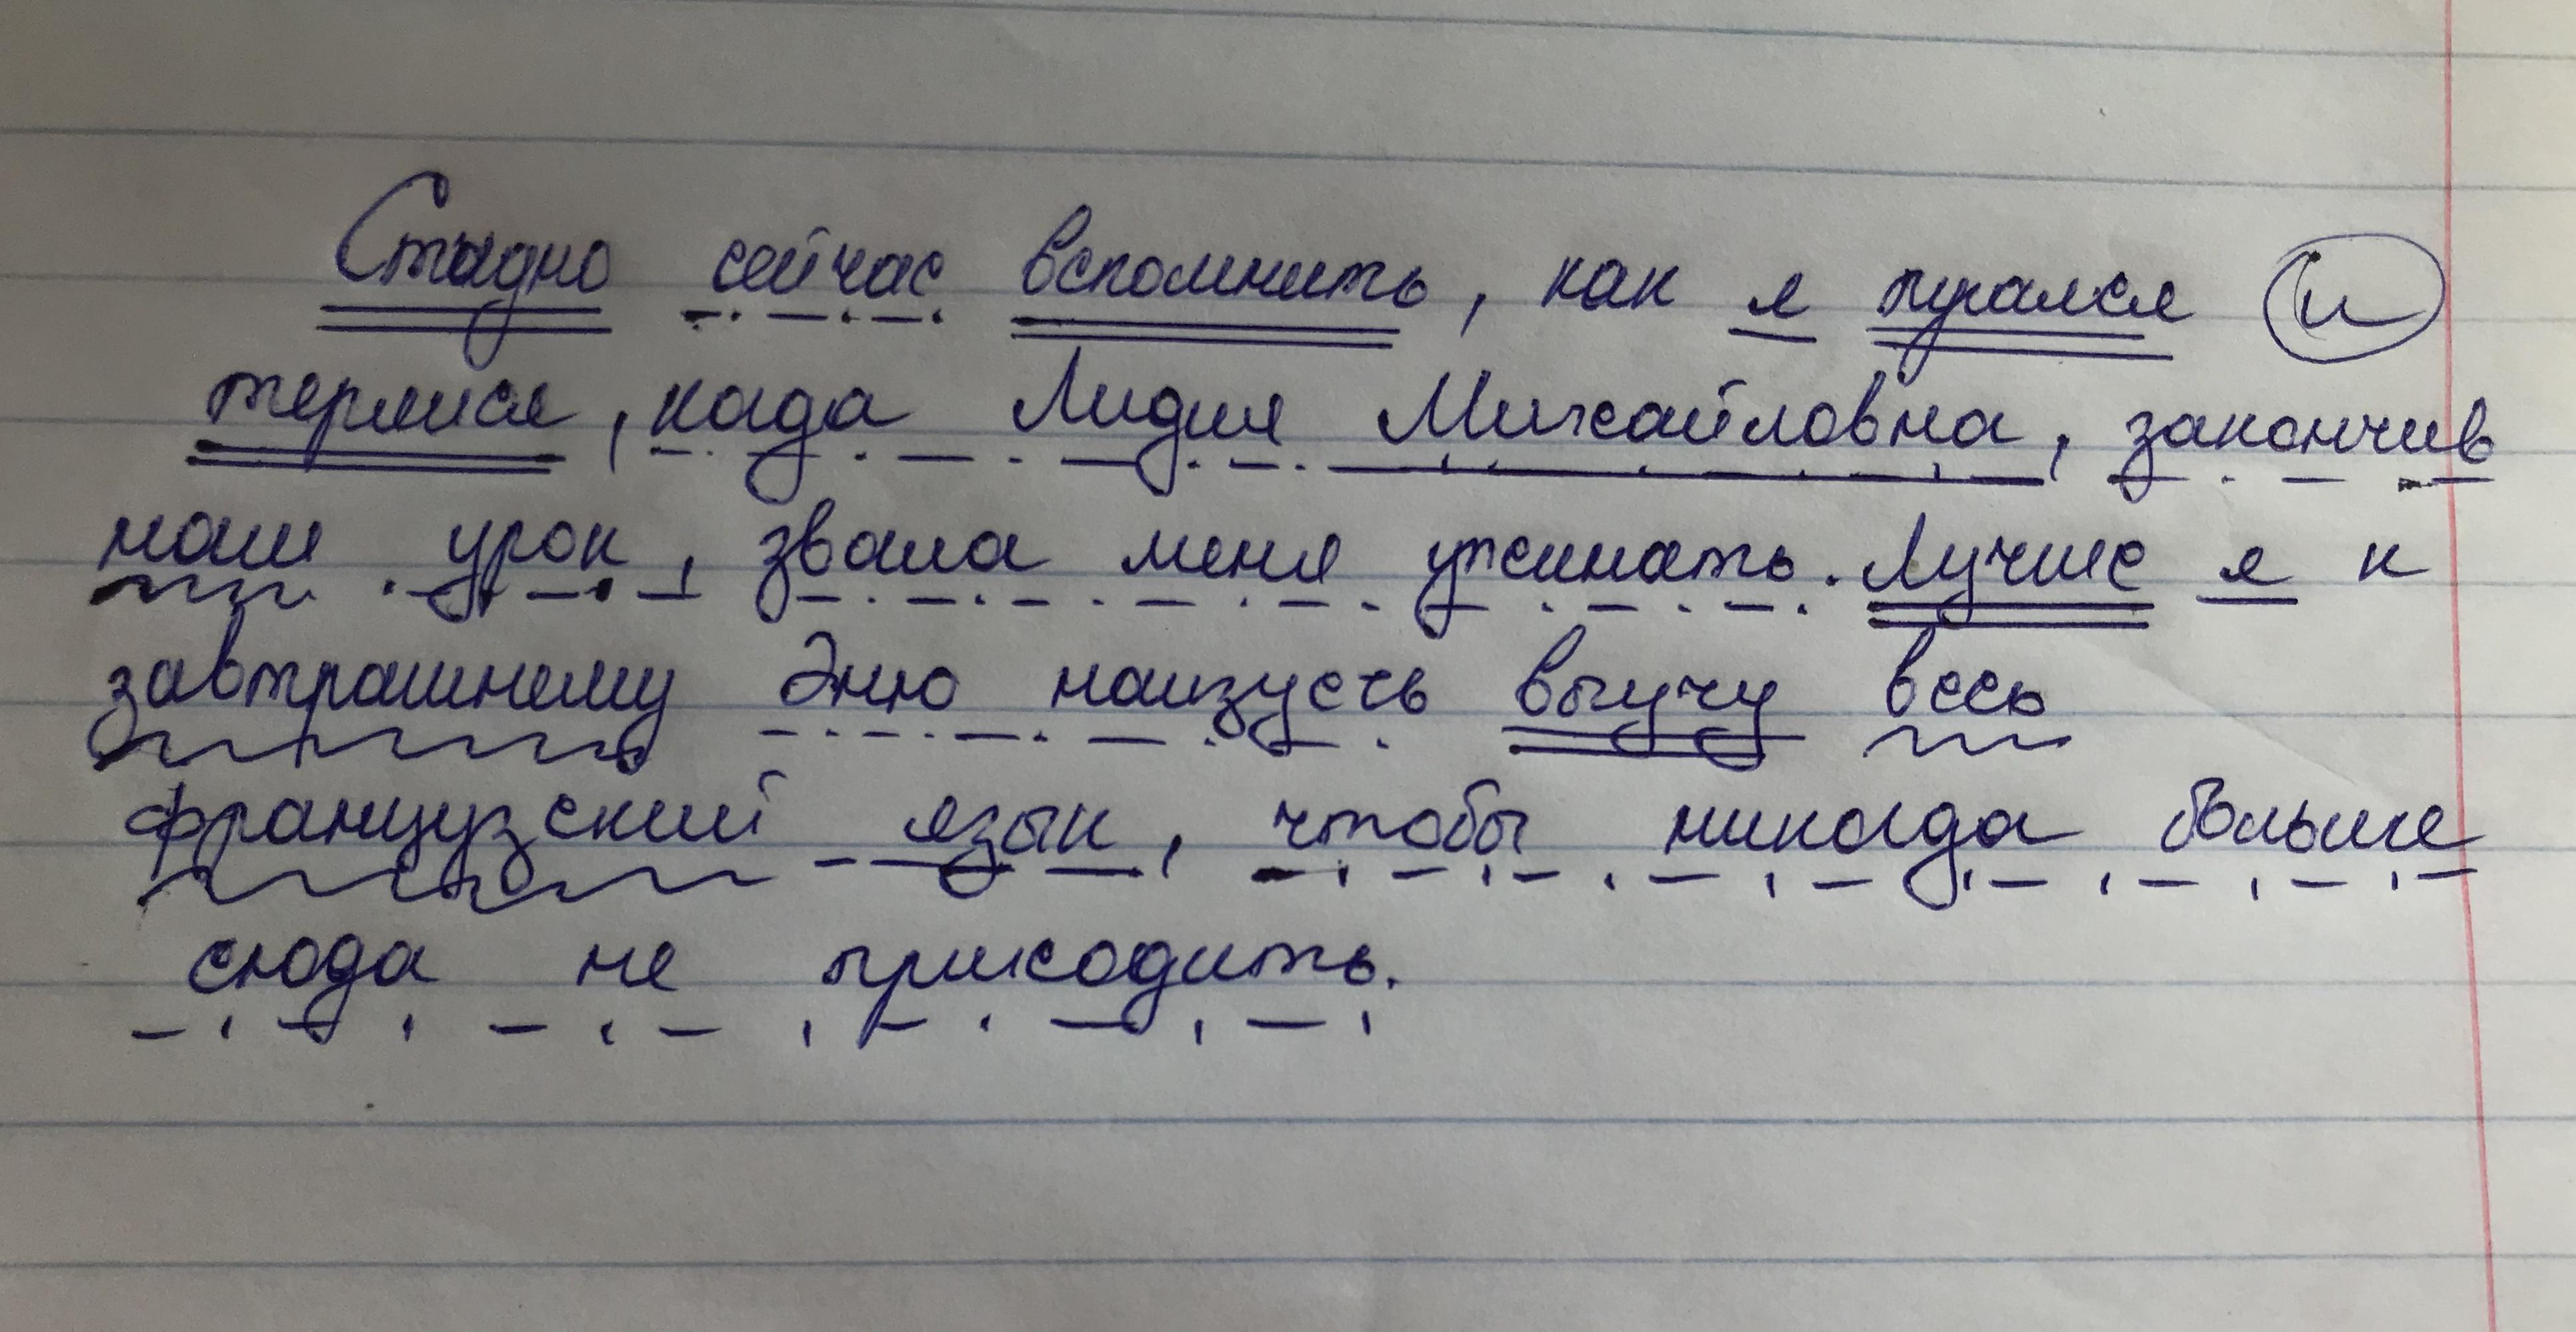 Стыдно сейчас вспомнить, как я пугался и
терялся, когда Лидия Михайловна, закончив
наш урок, звала меня ужинать. Лучше я к
завтрашнему дню наизусть выучу весь
французский язык, чтобы никогда больше
сюда не приходить.